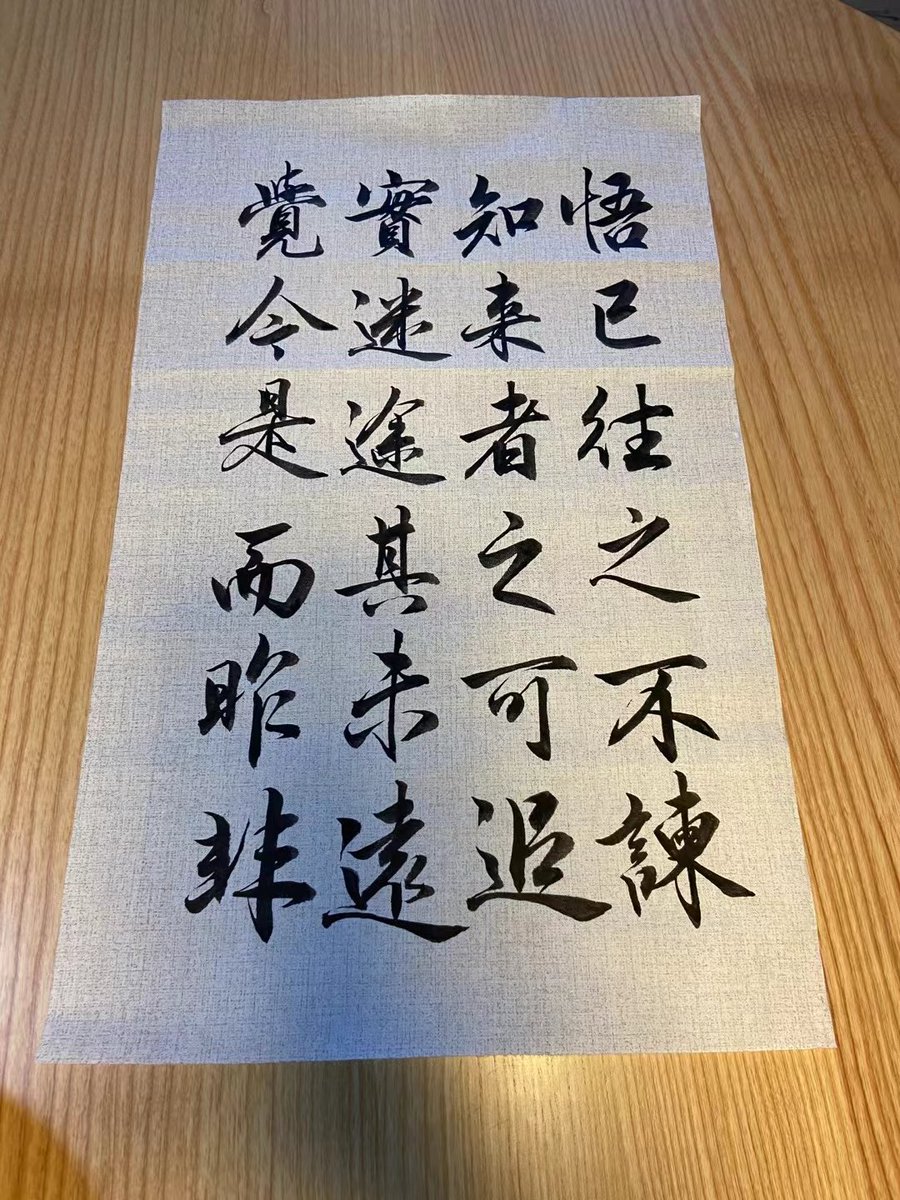 悟已往之不諫
知来者之可追
實迷途其未遠
覺今是而昨非